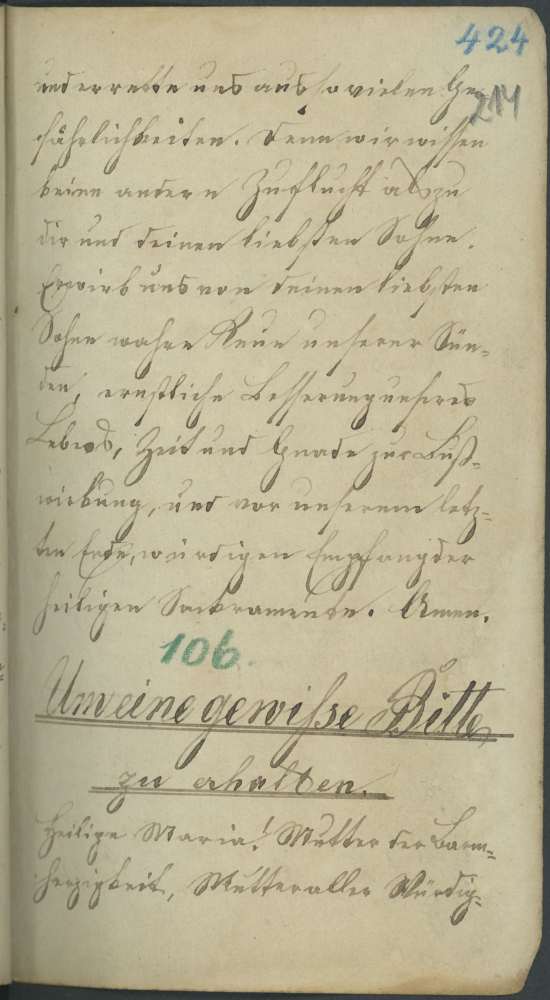 424
und errette uns aus so vielen Ge-
214
fährlichkeiten. Denn wir wissen
keine andern Zuflucht als zu
dir und deinen liebsten Sohne.
Erwirb uns von deinen liebsten
Sohne wahre Reue unserer Sün-
den, ernstliche Besserung unseres
Lebens, Zeit und Gnade zur Buß-
wirkung, und vor unserem letz-
ten Ende, würdigen Empfang der
heiligen Sackramente. Amen.
106.
Um eine gewiße Bitte
zu erhalten.
Heilige Maria! Mutter der Barm-
herzigkeit, Mutter aller Würdig-